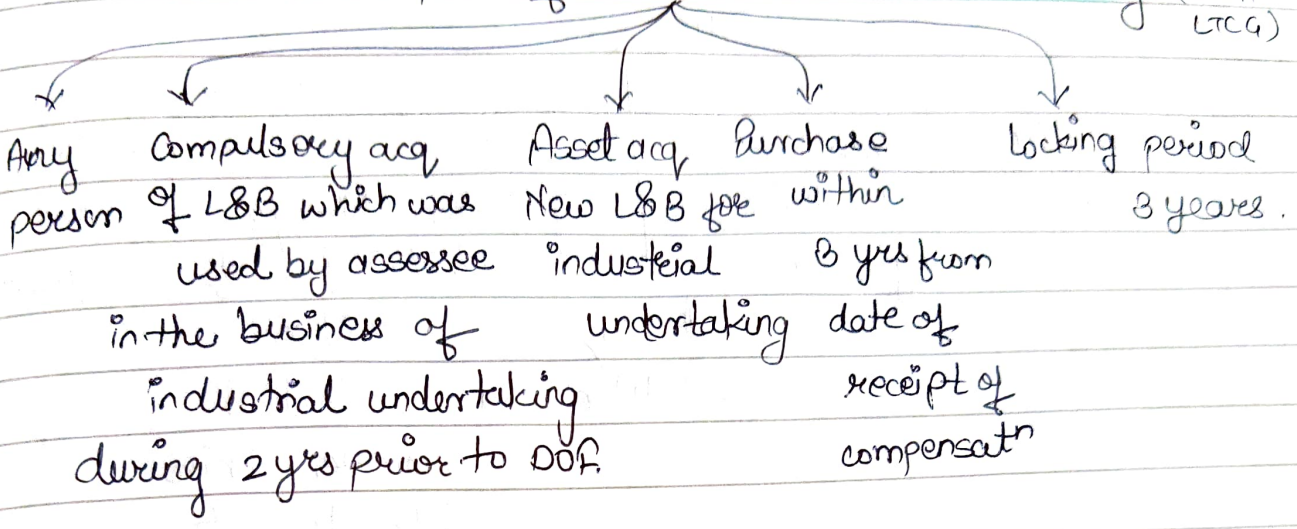 LTCG)
Any person
Compulsory acq
of L&B which was
used by assessee
in the business of
industrial undertaking
during 2 yrs prior to DOF.
Asset acq
New L&B for
industrial
undertaking
Purchase
within
3 yrs from
date of
receipt of
compensatn
Locking period
3 years.